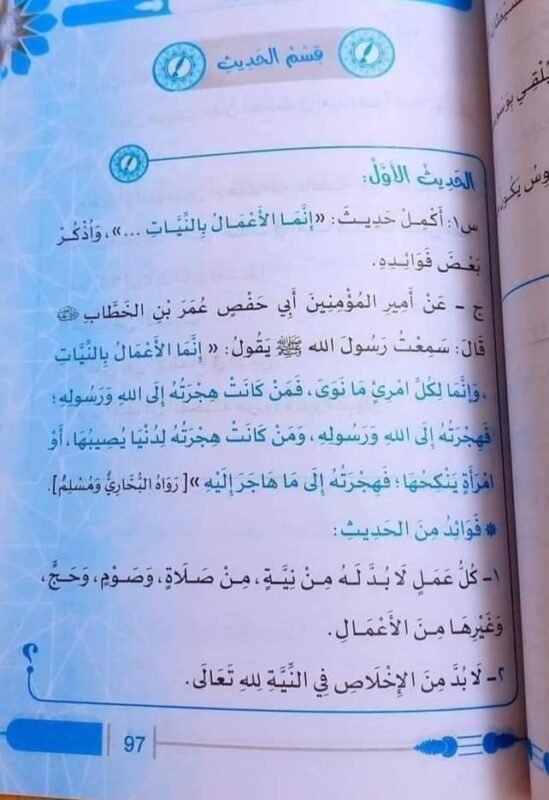 قِسْمُ الحَدِيثِ
الحَدِيثُ الأَوَّلُ:
س١: أَكْمِلْ حَدِيثَ: «إِنَّمَا الأَعْمَالُ بِالنِّيَّاتِ ...»، وَاذْكُرْ
بَعْضَ فَوَائِدِهِ.
ج - عَنْ أَمِيرِ المُؤْمِنِينَ أَبِي حَفْصٍ عُمَرَ بْنِ الخَطَّابِ ﵁
قَالَ: سَمِعْتُ رَسُولَ الله ﷺ يَقُولُ: « إِنَّمَا الأَعْمَالُ بِالنِّيَّاتِ
، وَإِنَّمَا لِكُلِّ امْرِئٍ مَا نَوَى، فَمَنْ كَانَتْ هِجْرَتُهُ إِلَى اللهِ وَرَسُولِهِ؛
فَهِجْرَتُهُ إِلَى اللهِ وَرَسُولِهِ، وَمَنْ كَانَتْ هِجْرَتُهُ لِدُنْيَا يُصِيبُهَا، أَوْ
امْرَأَةٍ يَنْكِحُهَا؛ فَهِجْرَتُهُ إِلَى مَا هَاجَرَ إِلَيْهِ »[ رَوَاهُ البُخَارِيُّ وَمُسْلِمٌ].
* فَوَائِدُ مِنَ الحَدِيثِ:
١- كُلُّ عَمَلٍ لَا بُدَّ لَهُ مِنْ نِيَّةٍ، مِنْ صَلَاةٍ، وَصَوْمٍ، وَحَجٍّ،
وَغَيْرِهَا مِنَ الأَعْمَالِ.
٢- لَا بُدَّ مِنَ الإِخْلَاصِ فِي النِّيَّةِ لِلهِ تَعَالَى.
؟
97